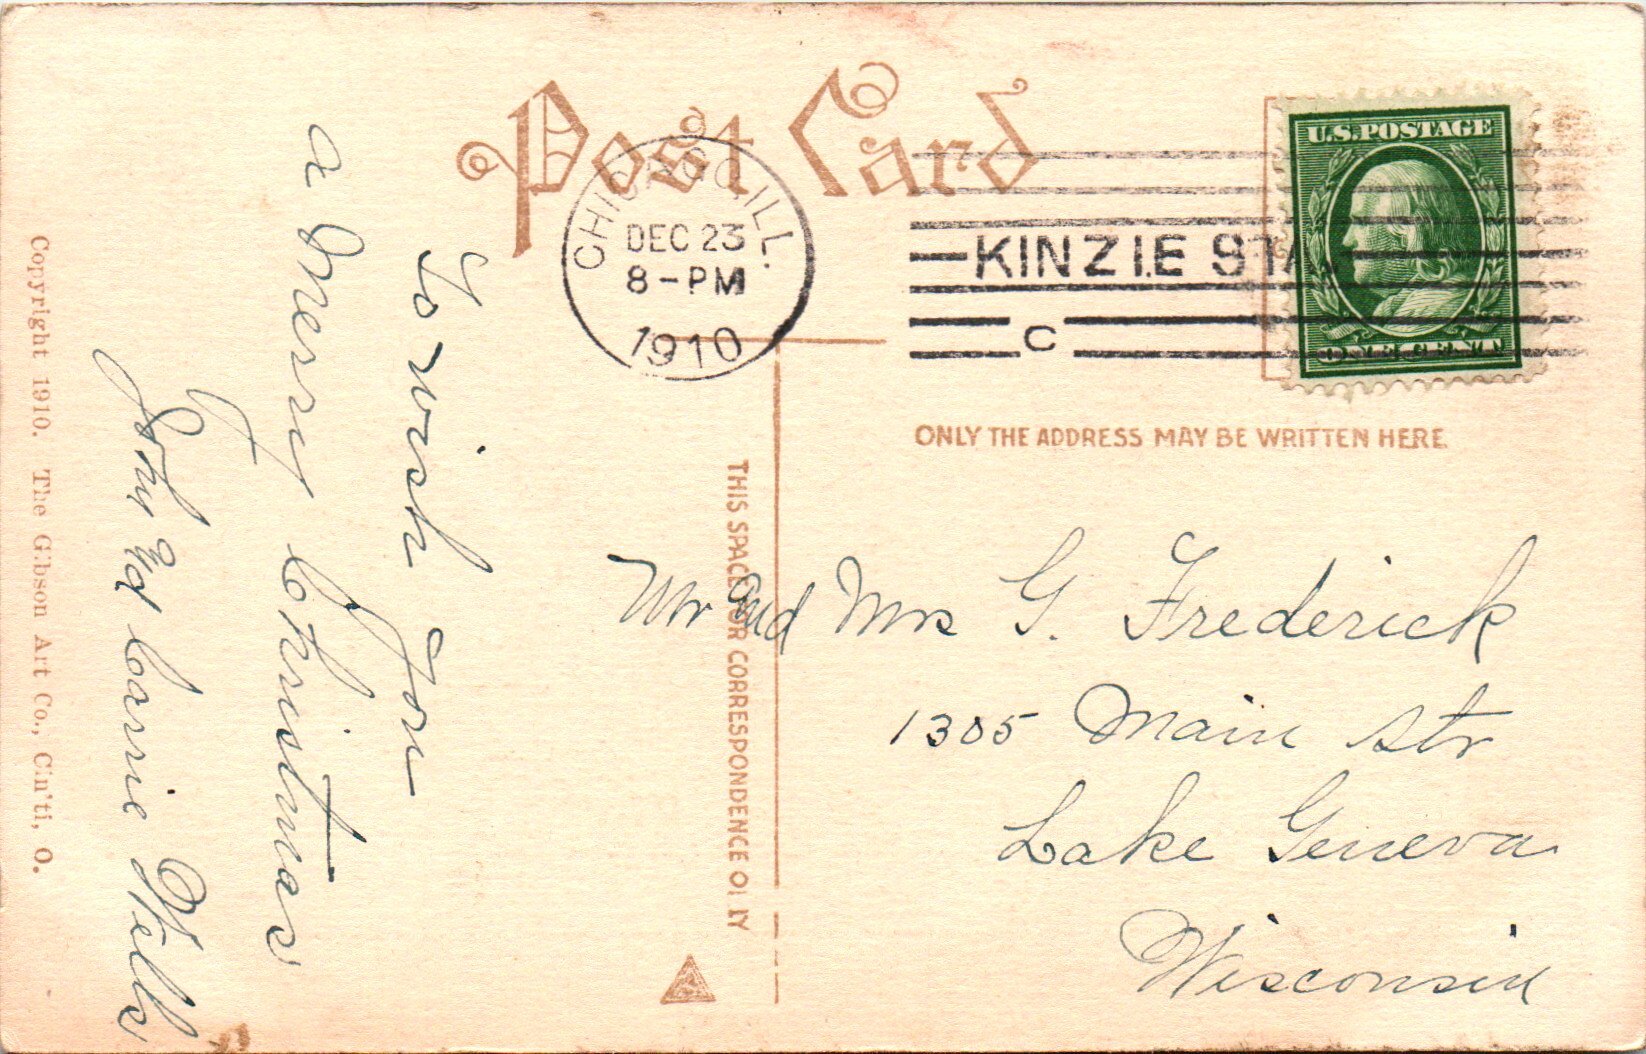 Post Card
CHICAGO, ILL.
DEC 23
8-PM
1910
KINZIE STA.
C
U.S. POSTAGE
ONE CENT
ONLY THE ADDRESS MAY BE WRITTEN HERE.
THIS SPACE FOR CORRESPONDENCE ONLY
To wish you
a Merry Christmas
John and Carrie Wells
Mr and Mrs G. Frederick
1305 Main Str
Lake Geneva
Wisconsin
Copyright 1910. The Gibson Art Co., Cin'ti, O.